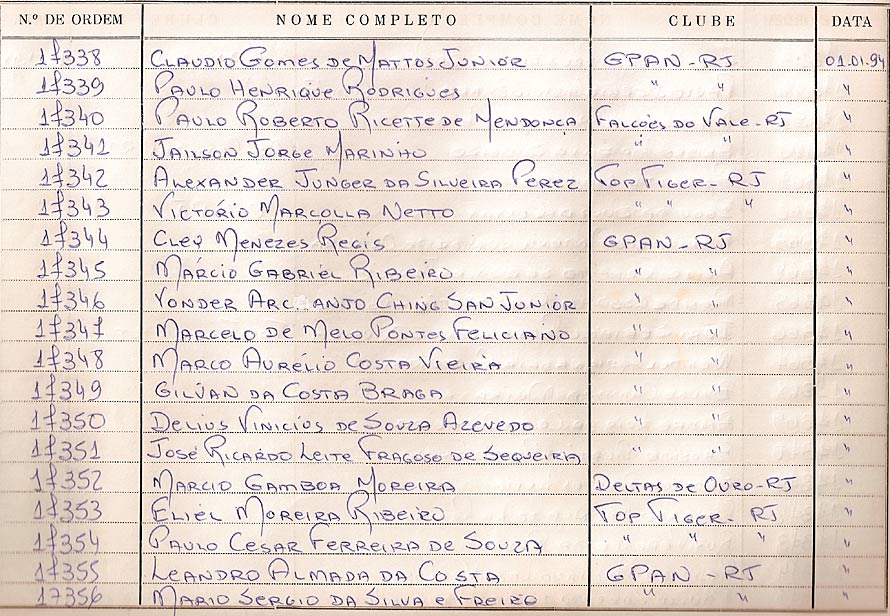 N.º DE ORDEM NOME COMPLETO CLUBE DATA
17338 CLAUDIO GOMES DE MATTOS JUNIOR GPAN-RJ 01.01.94
17339 PAULO HENRIQUE RODRIGUES " " "
17340 PAULO ROBERTO RICETTE DE MENDONÇA FALCÕES DO VALE-RJ "
17341 JAILSON JORGE MARINHO " " "
17342 ALEXANDER JUNGER DA SILVEIRA PEREZ TOP TIGER-RJ "
17343 VICTÓRIO MARCOLLA NETTO " " " "
17344 CLEY MENEZES REGIS GPAN-RJ "
17345 MÁRCIO GABRIEL RIBEIRO " " "
17346 YONDER ARC..ANJO CHING SAN JUNIOR " " "
17347 MARCELO DE MELO PONTES FELICIANO " " "
17348 MARCO AURÉLIO COSTA VIEIRA " " "
17349 GILVAN DA COSTA BRAGA " " "
17350 DELIUS VINICIUS DE SOUZA AZEVEDO " " "
17351 JOSÉ RICARDO LEITE FRAGOSO DE SEQUEIRA " " "
17352 MARCIO GAMBOA MOREIRA DELTAS DE OURO-RJ "
17353 ELIEL MOREIRA RIBEIRO TOP TIGER-RJ "
17354 PAULO CESAR FERREIRA DE SOUZA " " " "
17355 LEANDRO ALMADA DA COSTA GPAN-RJ "
17356 MARIO SERGIO DA SILVA E FREIRO " " "